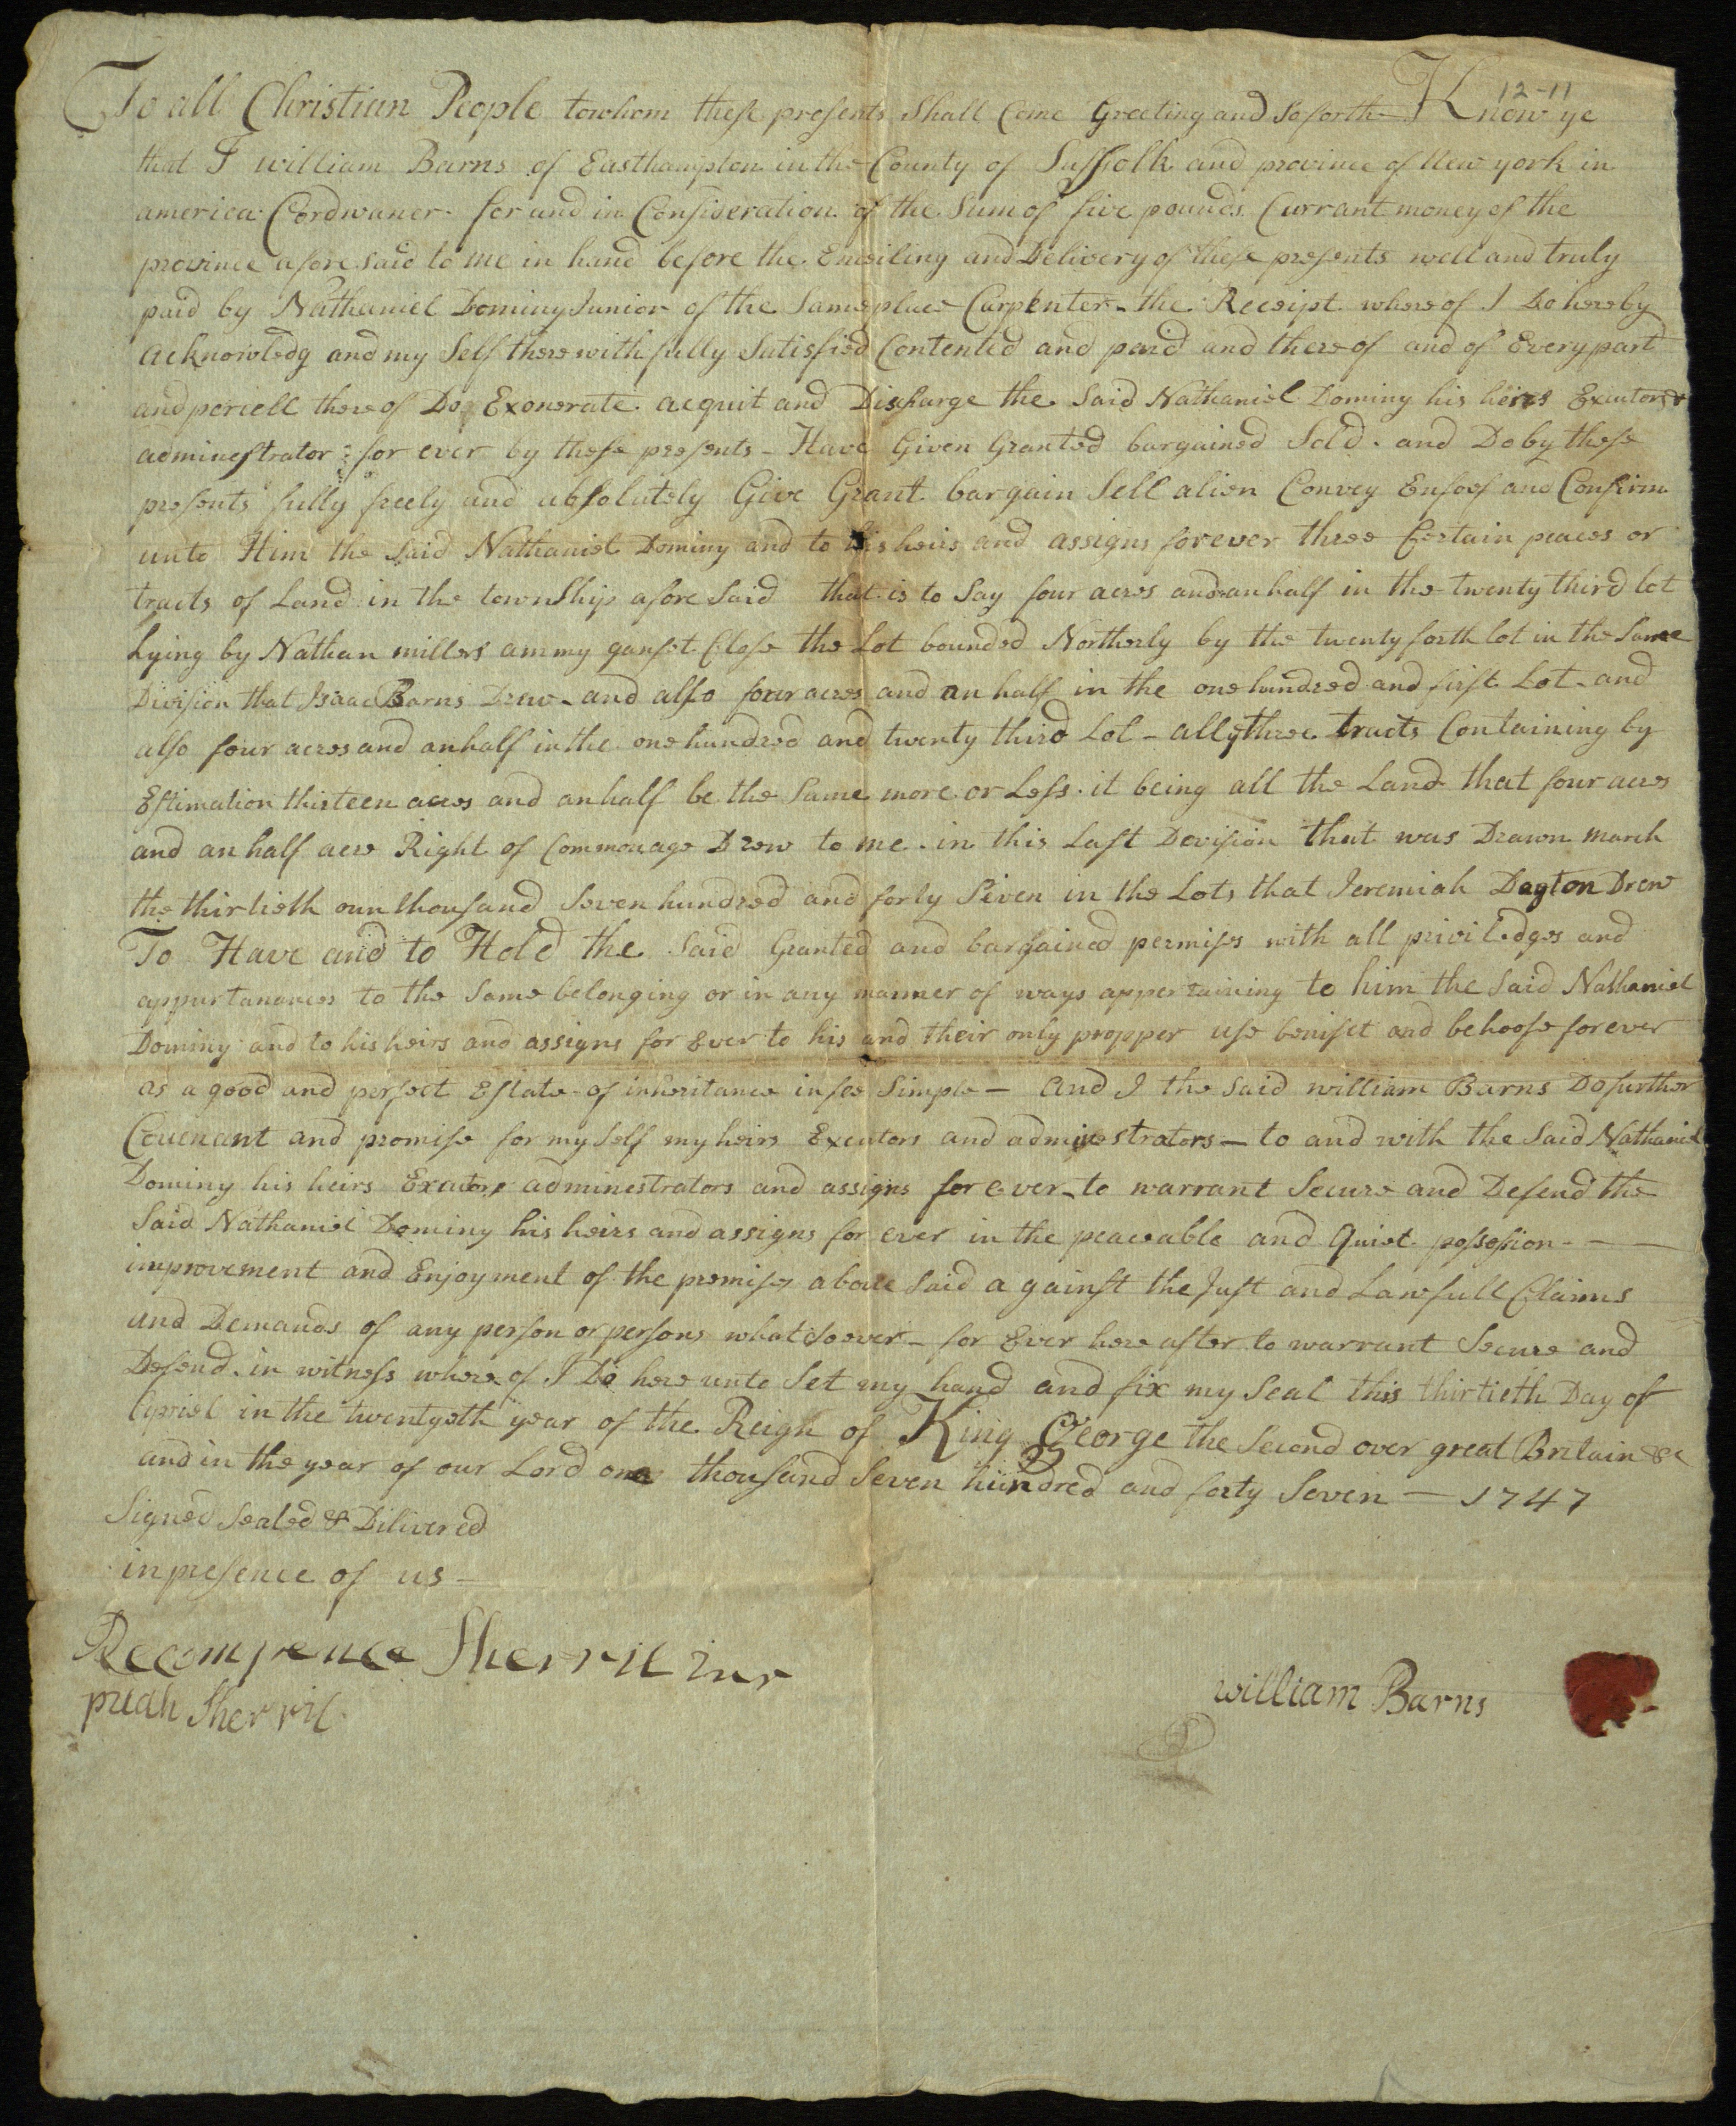 12-11
To all Christian People towhom these presents Shall Come Greeting and Soforth Know ye
that I william Barns of Easthampton in the County of Suffolk and province of New york in
america Cordwaner for and in Consideration of the Sum of five pounds Currant money of the
province afore said to me in hand before the Ensiling and Delivery of these presents well and truly
paid by Nathaniel Dominy Junior of the Same place Carpenter - the Receipt whereof I Do hereby
acknowledg and my Self therewith fully Satisfied Contented and paid and there of and of Every part
and percell there of Do Exonerate acquit and Discharge the Said Nathaniel Dominy his heirs Executors &
adminestrator for ever by these presents - Have Given Granted bargained Sold and Do by these
presents fully freely and absolutely Give Grant bargain Sell alien Convey Enfeof and Confirm
unto Him the Said Nathaniel Dominy and to his heirs and assigns forever three Certain peaces or
tracts of Land in the township afore Said that is to Say four acres and an half in the twenty third lot
Lying by Nathan millers ammy ganset Close the Lot bounded Northerly by the twenty forth lot in the Same
Division that Isaac Barns Drew - and also four acres and an half in the one hundred and first Lot - and
also four acres and an half in the one hundred and twenty third Lot - all ye three tracts Containing by
Estimation thirteen acres and an half be the Same more or Less. it being all the Land that four acres
and an half acre Right of Commonage Drew to me in this Last Devision that was Drawn march
the thirtieth oun thousand Seven hundred and forty Seven in the Lots that Jeremiah Dayton Drew
To Have and to Hold the Said Granted and bargained permises with all priviledges and
appurtanances to the Same belonging or in any manner of ways appertaining to him the Said Nathaniel
Dominy and to his heirs and assigns for Ever to his and their only propper use benifet and behoofe forever
as a good and perfect Estate of inheritance in fee Simple - And I the Said william Barns Do further
Covenent and promise for my Self my heirs Exeutors and adminestrators - to and with the Said Nathaniel
Dominy his heirs Exeutors adminestrators and assigns for ever - to warrant Secure and Defend the
Said Nathaniel Dominy his heirs and assigns for ever in the peaceable and Quiet possession - - -
improvement and Enjoyment of the premises above Said a gainst the Just and Lawfull Claims
and Demands of any person or persons whatsoever - for Ever here after to warrant Secure and
Defend. in witness where of I Do here unto Set my hand and fix my Seal this thirtieth Day of
Apriel in the twentyeth year of the Reign of King George the Second over great Britain &c
and in the year of our Lord one thousand Seven hundred and forty Seven - 1747
Signed Sealed & Dilivered
in presence of us -
Recompence Sherril Jnr
puah Sherril
william Barns